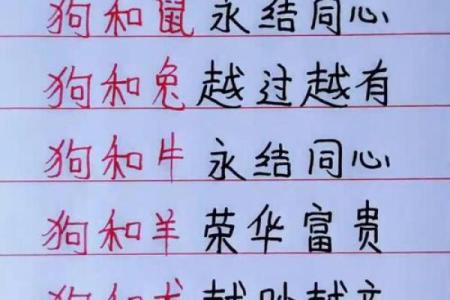 狗和鼠 永结同心
狗和兔越过越有
狗和牛 永结同心
狗和羊荣华富贵
狗和龙 越吵越